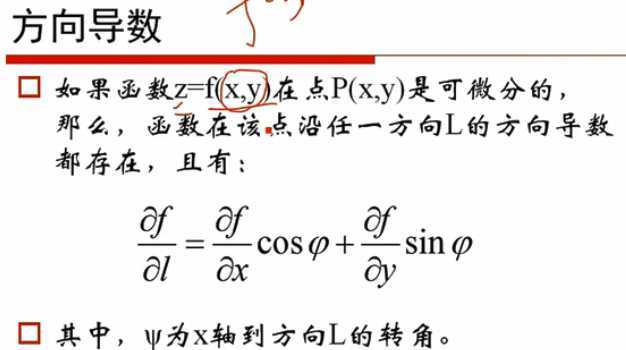 方向导数
□ 如果函数z=f(x,y)在点P(x,y)是可微分的，
那么，函数在该点沿任一方向L的方向导数
都存在，且有：
∂f/∂l = ∂f/∂x cos φ + ∂f/∂y sin φ
□ 其中，ψ为x轴到方向L的转角。